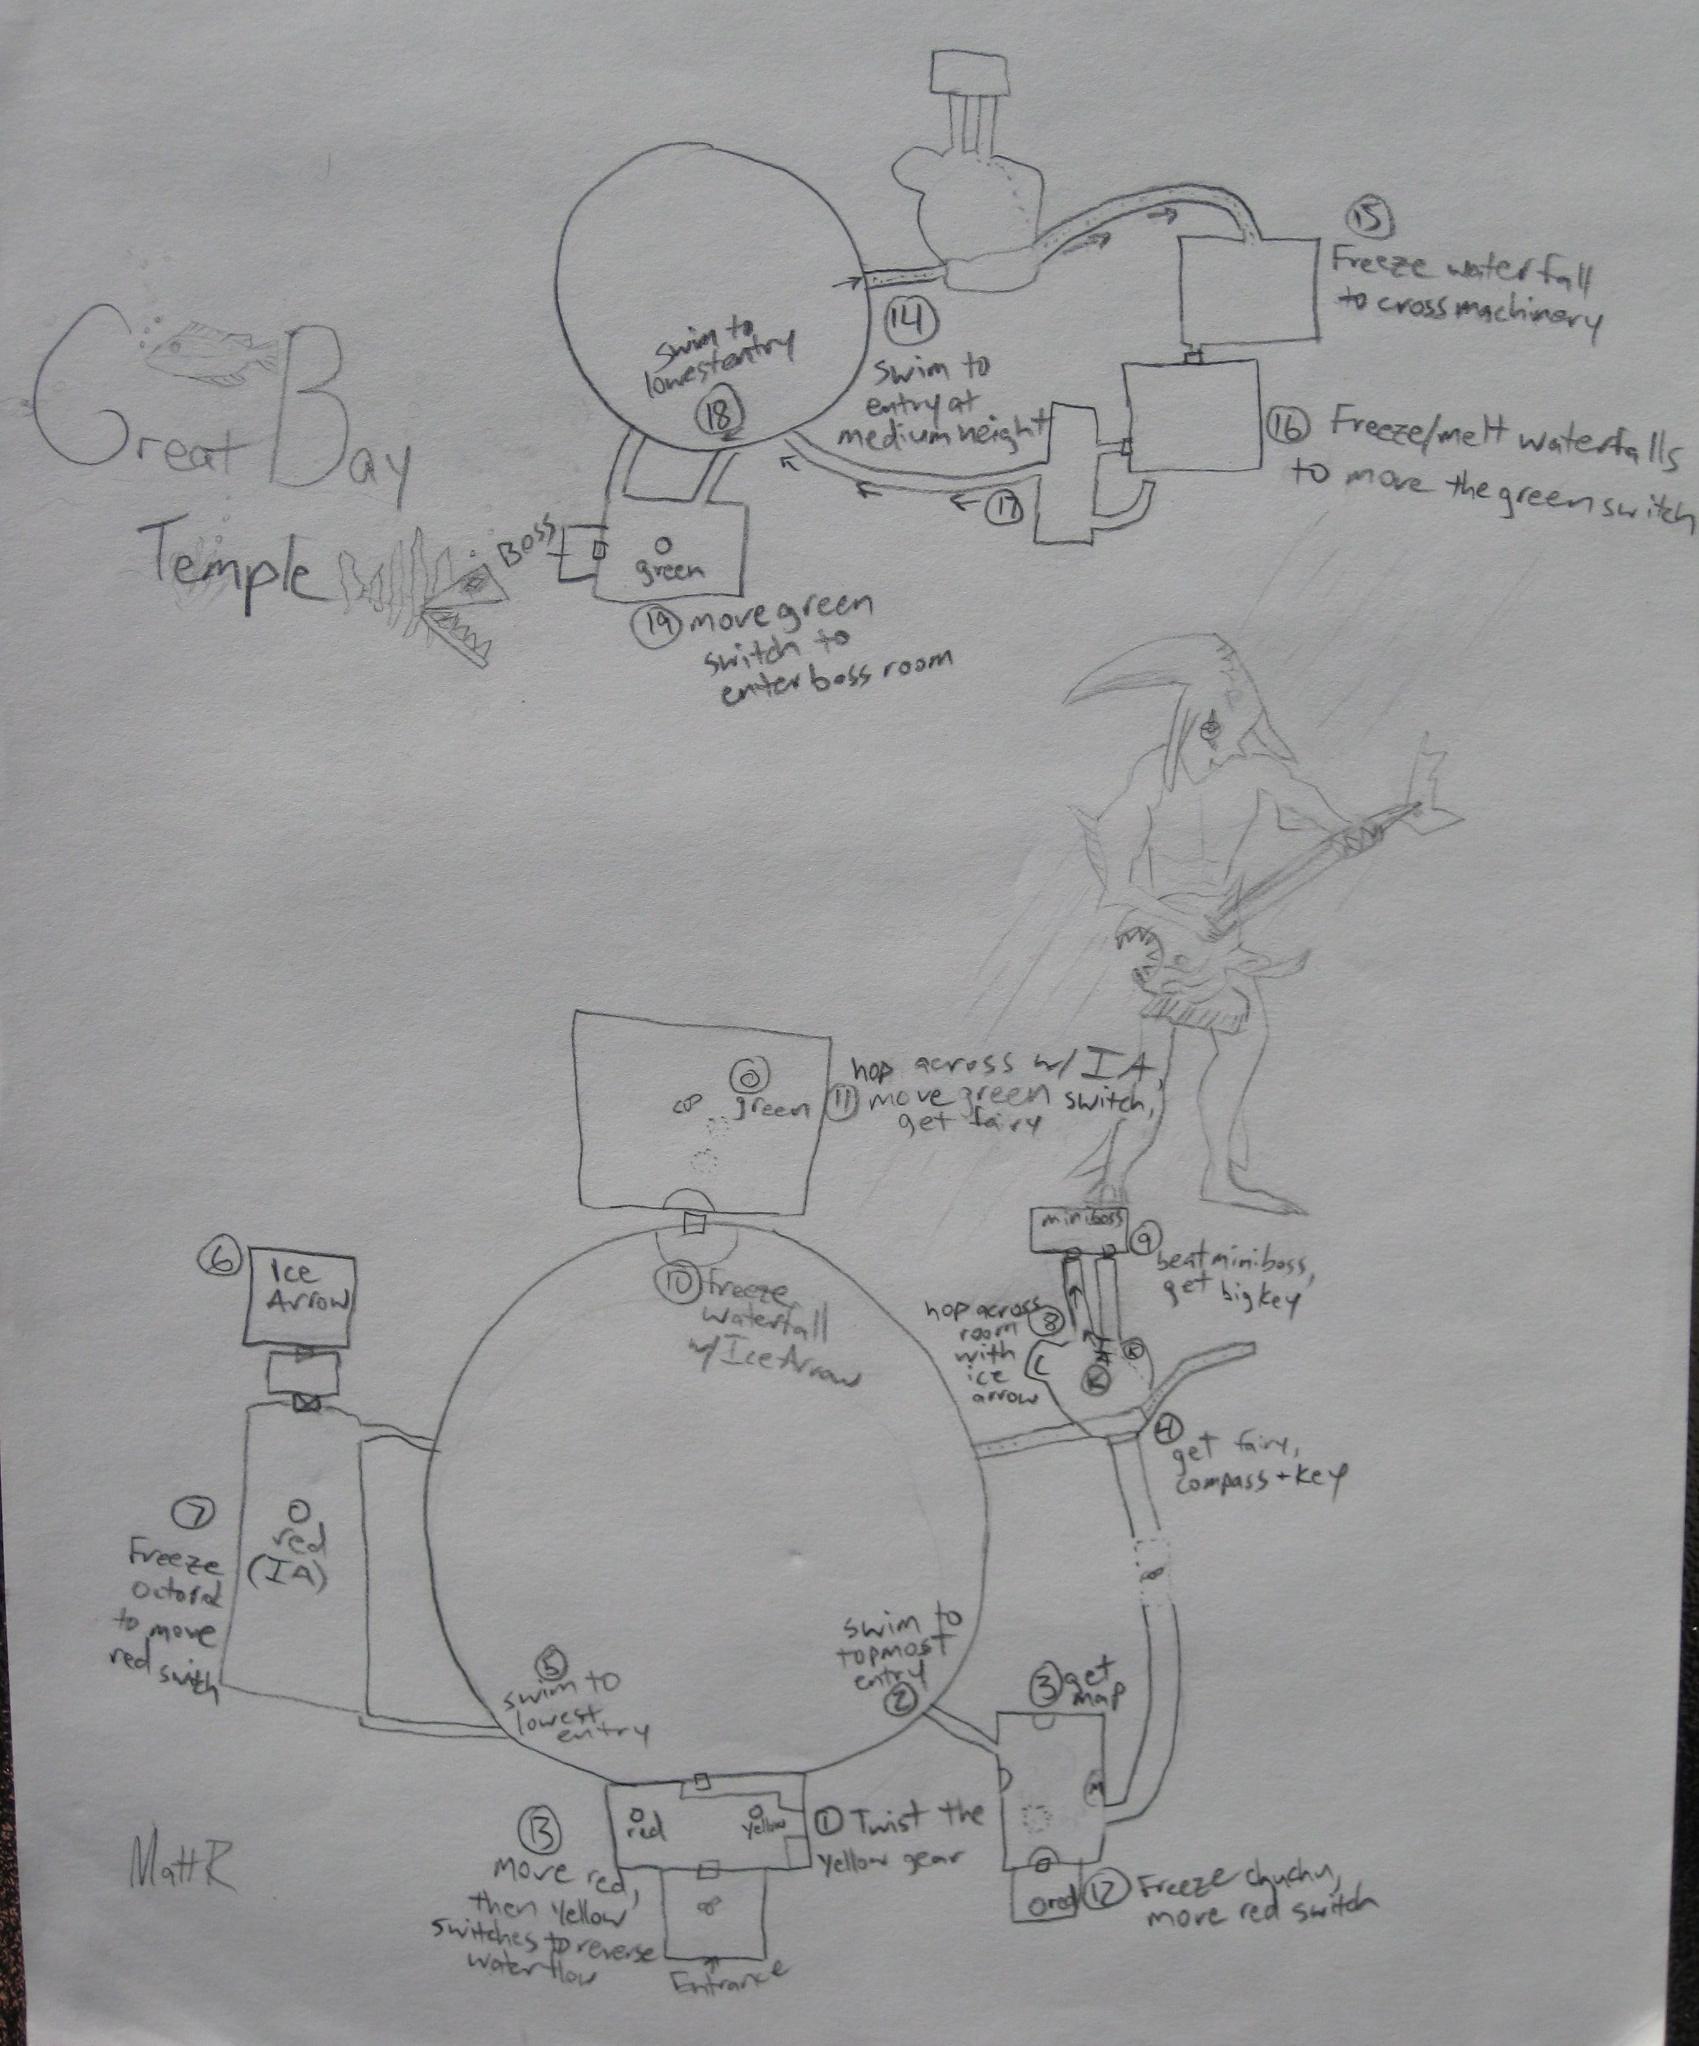 Great Bay
Temple
15
Freeze waterfall
to cross machinery
swim to
lowest entry
18
14
swim to
entry at
medium height
16 Freeze/melt waterfalls
to move the green switch
17
Boss
green
19 move green
switch to
enter boss room
green
hop across w/ IA,
11 move green switch,
get fairy
6
Ice
Arrow
10 freeze
waterfall
w/ Ice Arrow
miniboss
9
beat miniboss,
get big key
hop across 8
room
with
ice
arrow
C
K
K
4
get fairy,
compass + key
7
Freeze
to move
red swith
red
(IA)
5
swim to
lowest
entry
swim to
topmost
entry
2
3 get
map
M
red
yellow
1 Twist the
yellow gear
13
Move red,
then yellow
switches to reverse
water flow
Entrance
red
12 Freeze chuchu,
move red switch
Matt R